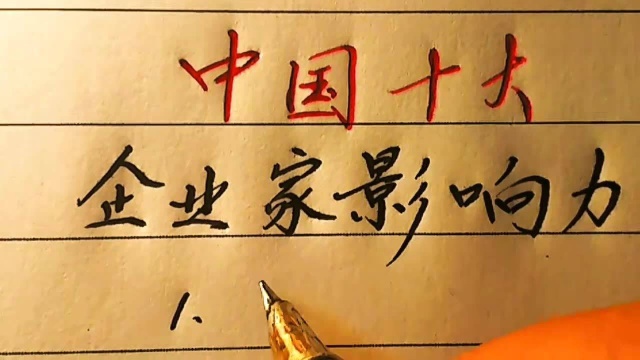 中国十大
企业家影响力
1、